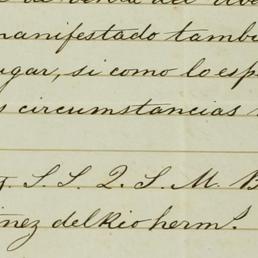 manifestado tambi
ugar, si como lo esp
s circumstancias
S. S. Q. S. M. B
ñez del Rio herm.s